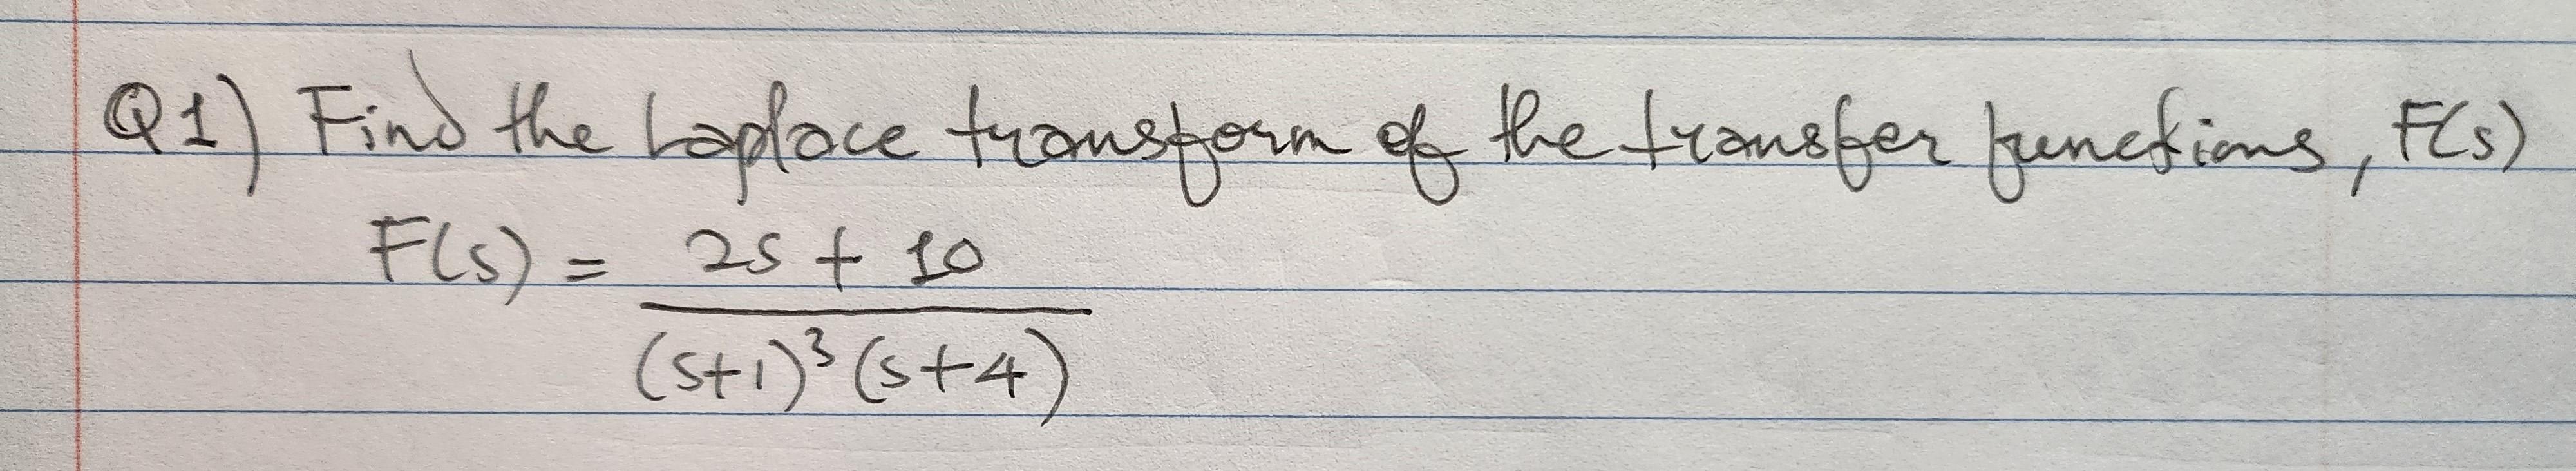 Q1) Find the Laplace transform of the transfer functions, F(s)
F(s) = 2s + 10
(s+1)³ (s+4)